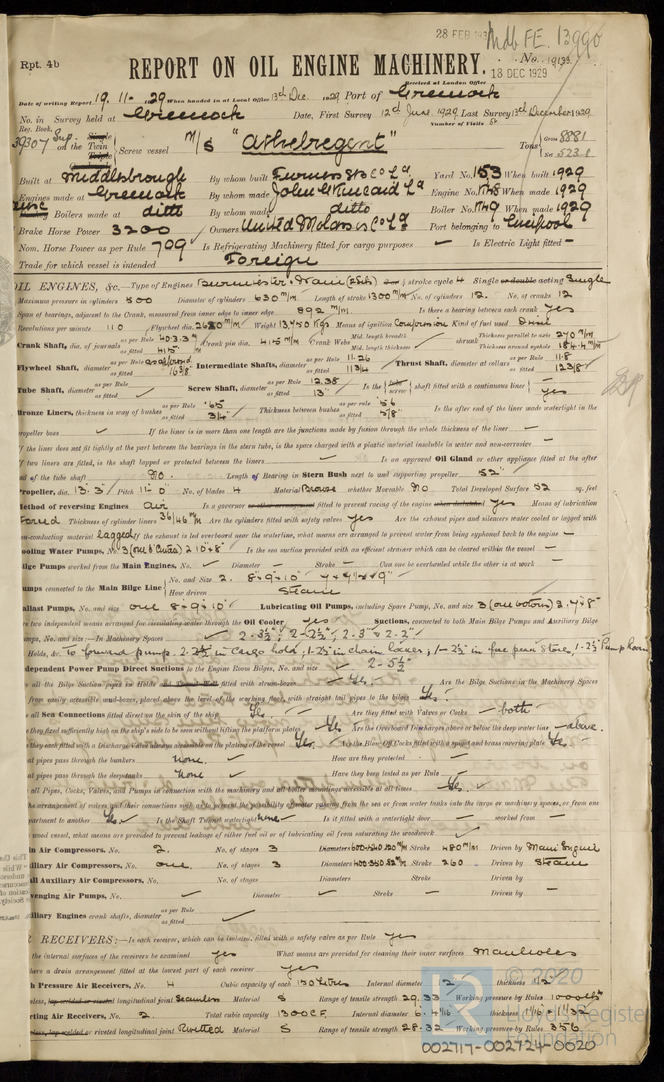 28 FEB 193
Mdb FE. 13990
Rpt. 4b
REPORT ON OIL ENGINE MACHINERY.
No. 19133
Received at London Office 18 DEC 1929
Date of writing Report 19. 11. 29. When handed in at Local Office 13th Dec. 1929 Port of Greenock
No. in Survey held at Greenock Date, First Survey 12th June 1929 Last Survey 13th December 1929
Reg. Book. Number of Visits
39307 Sup. on the Single Twin Triple Screw vessel M/S "Athelregent" Tons Gross 8881 Net 5238
Built at Middlesbrough By whom built Furness SB Co Ld Yard No. 153 When built 1929
Engines made at Greenock By whom made John G Kincaid Ld Engine No. When made 1929
Boilers made at ditto By whom made ditto Boiler No. When made 1929
Brake Horse Power 3200 Owners United Molasses Co Ld Port belonging to Liverpool
Nom. Horse Power as per Rule 799 Is Refrigerating Machinery fitted for cargo purposes — Is Electric Light fitted —
Trade for which vessel is intended Foreign
OIL ENGINES, &c.—Type of Engines Burmeister & Wain 2 or 4 stroke cycle 4 Single or double acting Single
Maximum pressure in cylinders 500 Diameter of cylinders 630 m/m Length of stroke 1300 m/m No. of cylinders 12. No. of cranks 12
Span of bearings, adjacent to the Crank, measured from inner edge to inner edge 892 m/m Is there a bearing between each crank yes
Revolutions per minute 110 Flywheel dia. Weight Means of ignition Compression Kind of fuel used
Crank Shaft, dia. of journals as per Rule as fitted 415 m/m Crank pin dia. 415 m/m Crank Webs Mid. length breadth Mid. length thickness shrunk Thickness parallel to axis 270 m/m Thickness around eyehole 184.4 m/m
Flywheel Shaft, diameter as per Rule as fitted 16 3/8" Intermediate Shafts, diameter as per Rule 11.26 as fitted 11 3/4 Thrust Shaft, diameter at collars as per Rule 11.8 as fitted 12 3/8"
Tube Shaft, diameter as per Rule as fitted Screw Shaft, diameter as per Rule 12.38 as fitted 13" Is the tube screw shaft fitted with a continuous liner yes
Bronze Liners, thickness in way of bushes as per Rule .65 as fitted 3/4" Thickness between bushes as per Rule .56 as fitted 5/8" Is the after end of the liner made watertight in the
propeller boss — If the liner is in more than one length are the junctions made by fusion through the whole thickness of the liner —
If the liner does not fit tightly at the part between the bearings in the stern tube, is the space charged with a plastic material insoluble in water and non-corrosive —
If two liners are fitted, is the shaft lapped or protected between the liners — Is an approved Oil Gland or other appliance fitted at the after
end of the tube shaft No. Length of Bearing in Stern Bush next to and supporting propeller 52"
Propeller, dia. 13.3 Pitch 11' 0" No. of blades 4 Material Bronze whether Moveable No Total Developed Surface 52 sq. feet
Method of reversing Engines air Is a governor or other arrangement fitted to prevent racing of the engine when declutched yes Means of lubrication
forced Thickness of cylinder liners 36/46 m/m Are the cylinders fitted with safety valves yes Are the exhaust pipes and silencers water cooled or lagged with
non-conducting material lagged If the exhaust is led overboard near the waterline, what means are arranged to prevent water from being syphoned back to the engine —
Cooling Water Pumps, No. 3 Is the sea suction provided with an efficient strainer which can be cleared within the vessel —
Bilge Pumps worked from the Main Engines, No. — Diameter — Stroke — Can one be overhauled while the other is at work —
Pumps connected to the Main Bilge Line No. and Size 2. 8"×9"×10" How driven Steam
Ballast Pumps, No. and size one 8×9×10" Lubricating Oil Pumps, including Spare Pump, No. and size
Are two independent means arranged for circulating water through the Oil Cooler yes Suctions, connected to both Main Bilge Pumps and Auxiliary Bilge
Pumps, No. and size:—In Machinery Spaces 2-3½", 2-2½", 2-3" & 2-2"
In Holds, &c. To forward pump. 2-2½" in cargo hold, 1-2½ in chain locker, 1-2½ in fore peak store, 1-2½ Pump room
Independent Power Pump Direct Suctions to the Engine Room Bilges, No. and size 2-5½"
Are all the Bilge Suction pipes in Holds and Tunnel Well fitted with strum-boxes Yes. Are the Bilge Suctions in the Machinery Spaces
led from easily accessible mud-boxes, placed above the level of the working floor, with straight tail pipes to the bilges Yes.
Are all Sea Connections fitted direct on the skin of the ship Yes Are they fitted with Valves or Cocks both
Are they fixed sufficiently high on the ship's side to be seen without lifting the platform plates Yes Are the Overboard Discharges above or below the deep water line above.
Are they each fitted with a Discharge Valve always accessible on the plating of the vessel Yes. Are the Blow Off Cocks fitted with a spigot and brass covering plate Yes
What pipes pass through the bunkers None. How are they protected —
What pipes pass through the deep tanks None Have they been tested as per Rule —
Are all Pipes, Cocks, Valves, and Pumps in connection with the machinery and all boiler mountings accessible at all times Yes.
Is the arrangement of valves and their connections such as to prevent the possibility of water passing from the sea or from water tanks into the cargo or machinery spaces, or from one
compartment to another Yes Is the Shaft Tunnel watertight None Is it fitted with a watertight door — worked from —
If a wood vessel, what means are provided to prevent leakage of either fuel oil or of lubricating oil from saturating the woodwork —
Main Air Compressors, No. 2. No. of stages 3 Diameters Stroke 480 m/m Driven by Main Engines
Auxiliary Air Compressors, No. one. No. of stages 3 Diameters Stroke 260 Driven by Steam
Small Auxiliary Air Compressors, No. No. of stages Diameters Stroke Driven by
Scavenging Air Pumps, No. — Diameter — Stroke — Driven by —
Auxiliary Engines crank shafts, diameter as per Rule as fitted
AIR RECEIVERS:—Is each receiver, which can be isolated, fitted with a safety valve as per Rule yes
Can the internal surfaces of the receivers be examined yes What means are provided for cleaning their inner surfaces Manholes
Is there a drain arrangement fitted at the lowest part of each receiver yes
High Pressure Air Receivers, No. 4 Cubic capacity of each 150 litres Internal diameter thickness
Seamless, lap welded or riveted longitudinal joint Seamless Material S Range of tensile strength 29.33 Working pressure by Rules 1000 lbs
Starting Air Receivers, No. 2. Total cubic capacity 1300 CF. Internal diameter thickness
Seamless, lap welded or riveted longitudinal joint Rivetted Material S Range of tensile strength 28.32 Working pressure by Rules 356
© 2020
Lloyd's Register
Foundation
002717-002724-0020